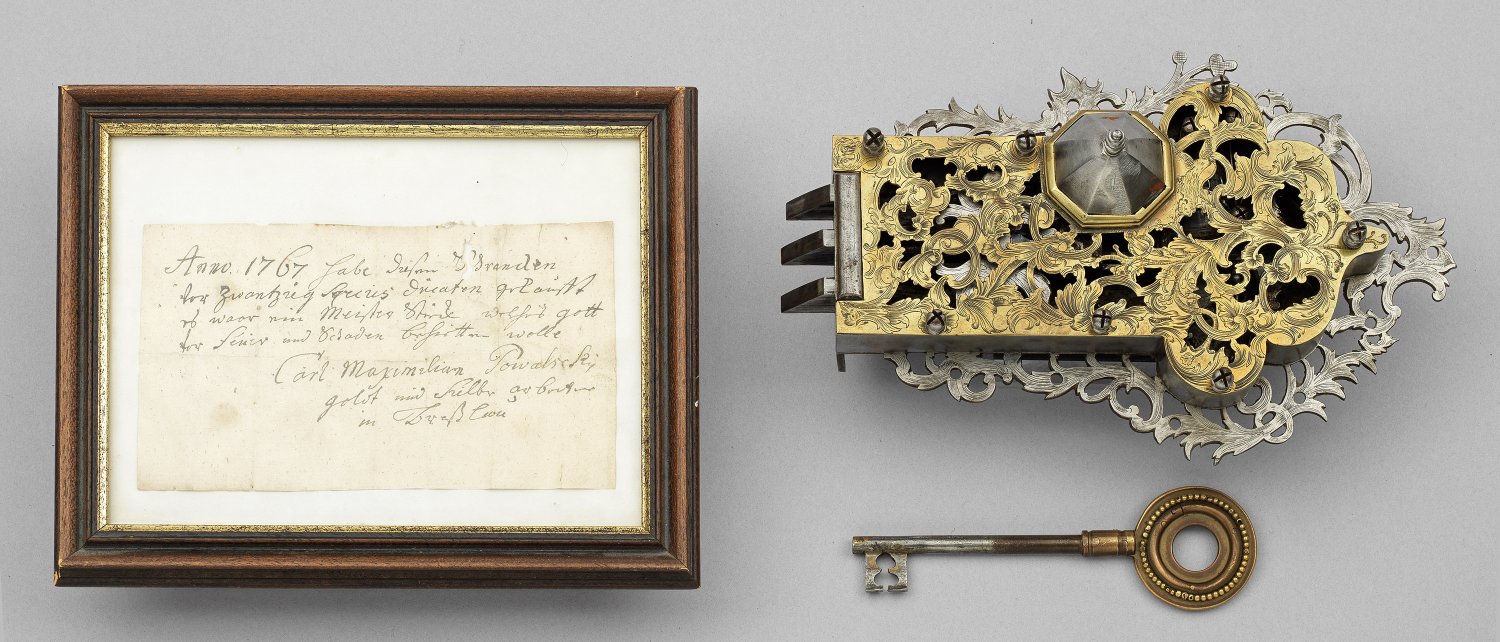 Anno 1767 habe diesen Schrancken
vor zwantzig Species Ducaten gekaufft
es waar ein Meister Stück welches gott
vor Feuer und Schaden behütten wolle
Carl Maximilian Powalsky
goldt und Silber arbeiter
in Breßlau